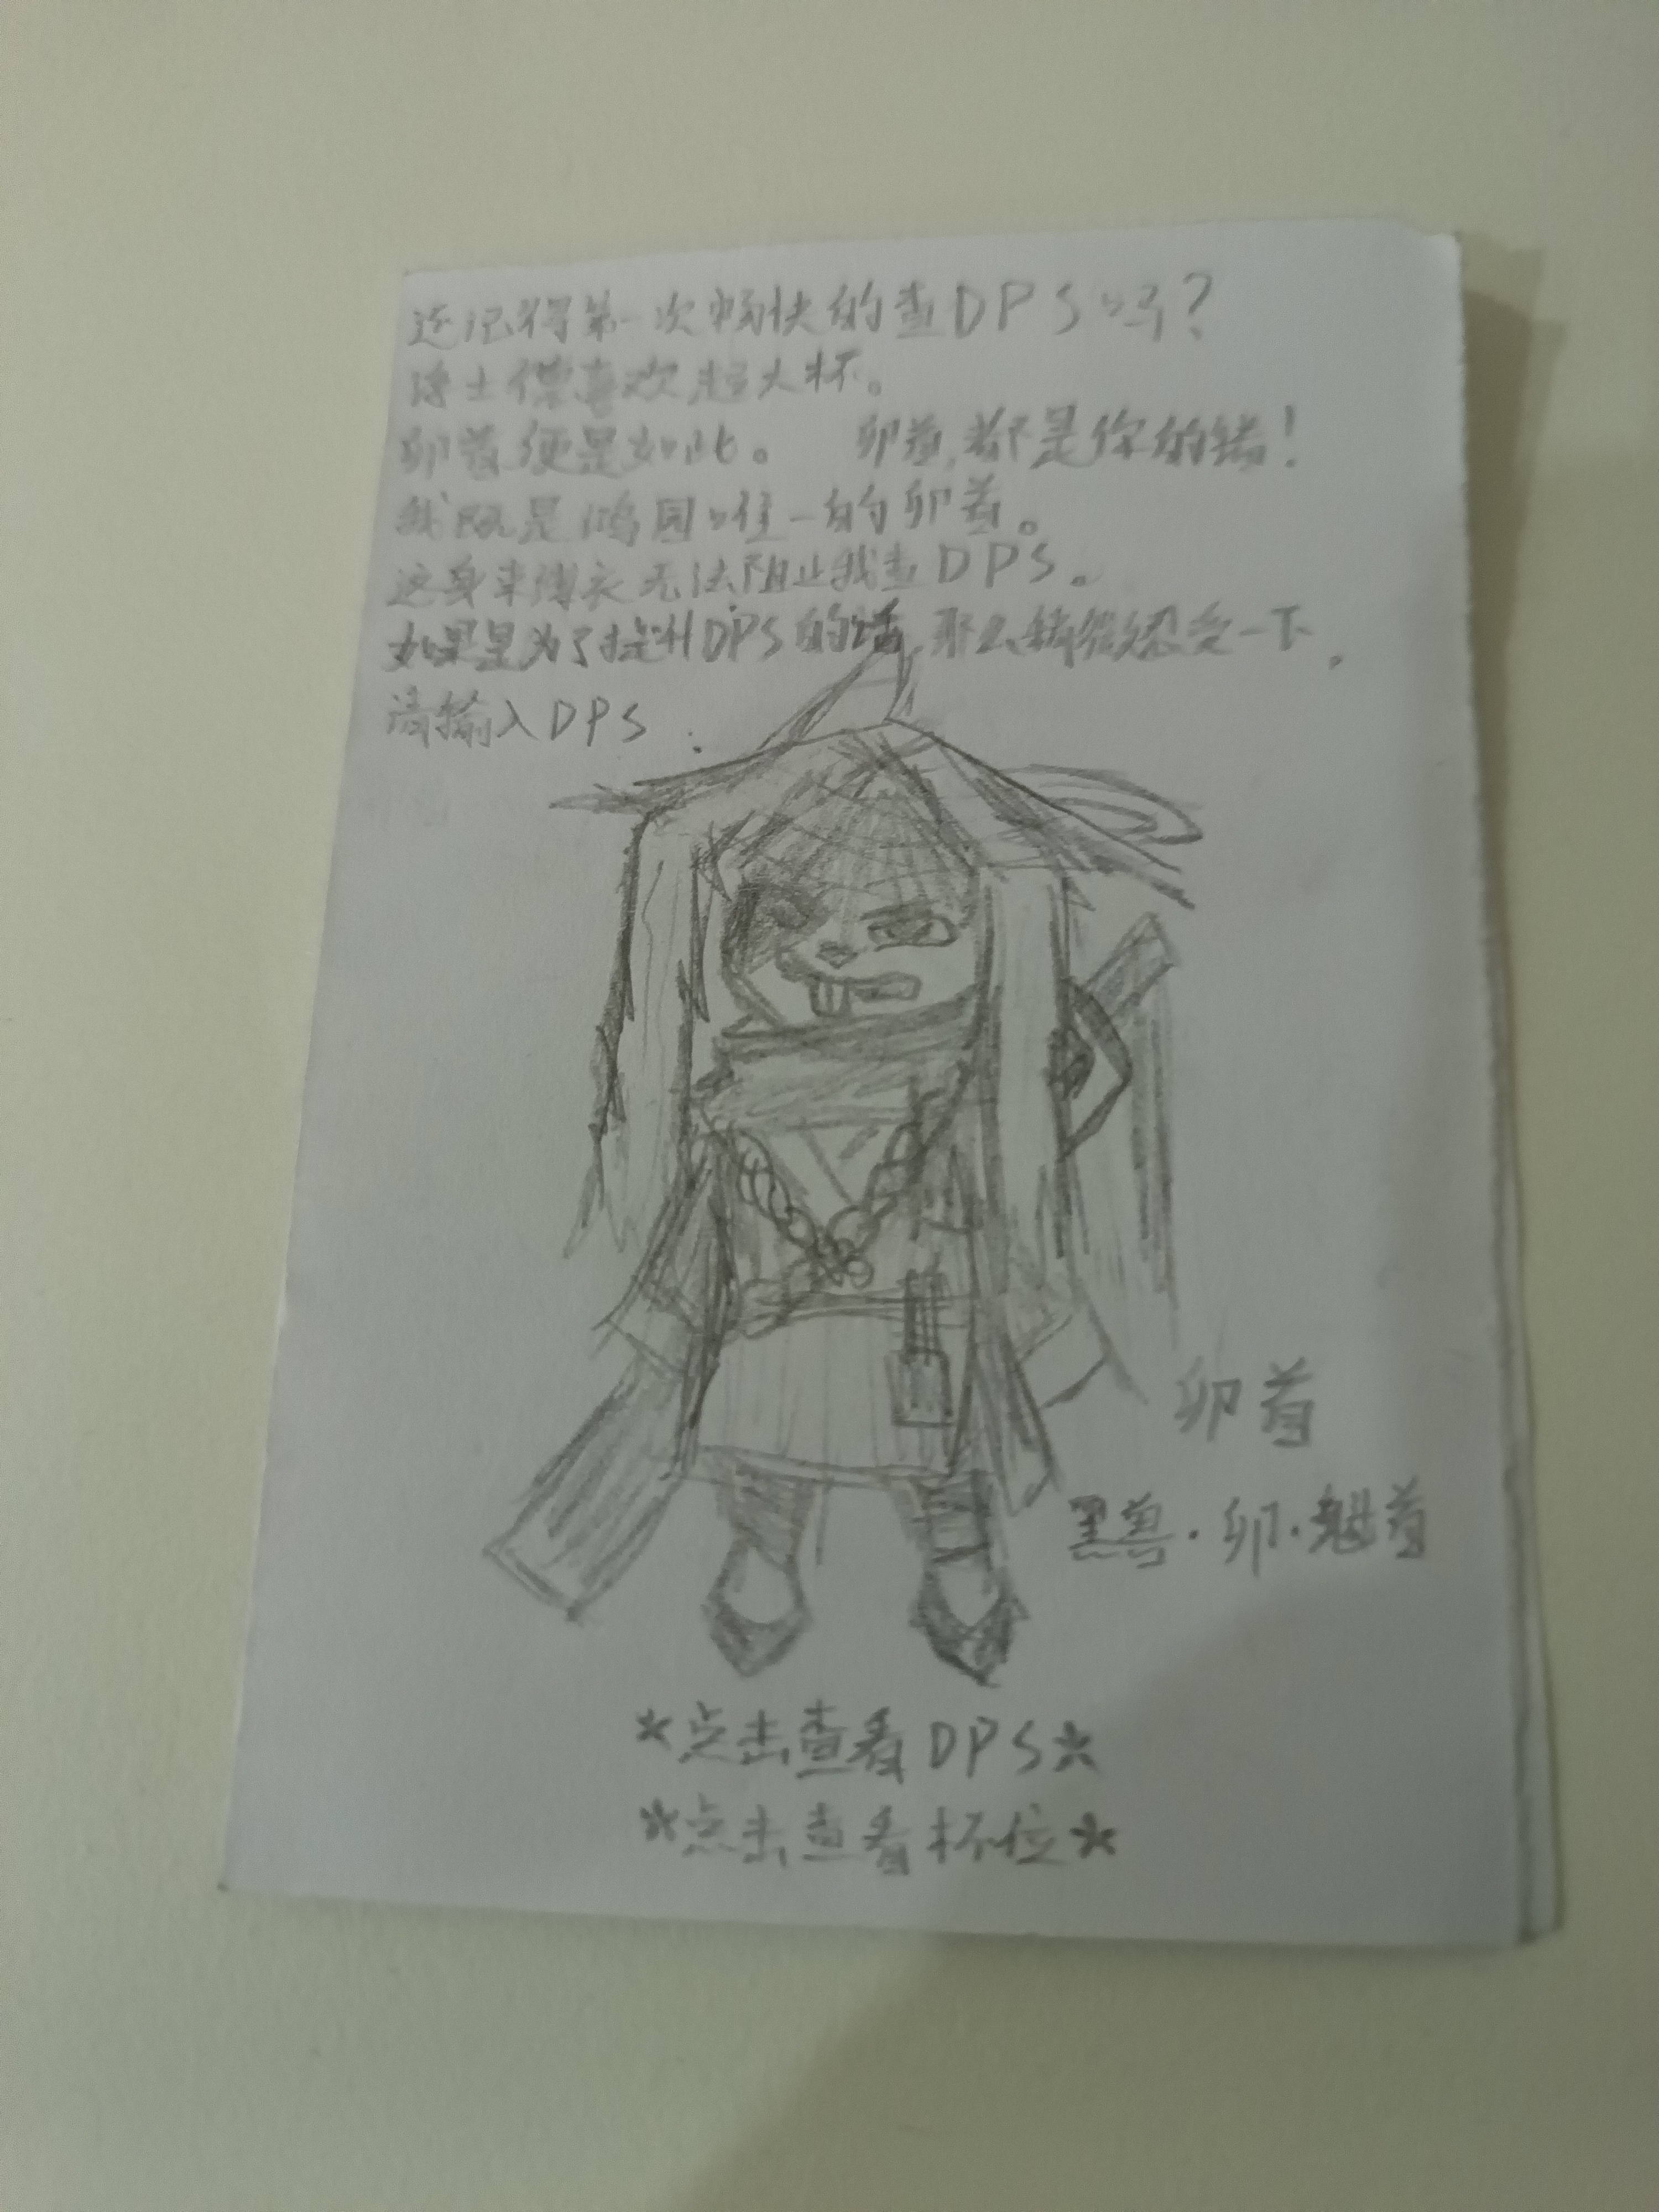 还记得第一次畅快的查DPS吗?
博士僕喜欢超大杯。
卯首便是如此。 卯首,都是你的错!
我既是鸿园唯一的卯首。
这身束缚衣无法阻止我查DPS。
如果是为了提升DPS的话,那么稍微忍受一下,
请输入DPS :
卯首
黑兽·卯·魁首
*点击查看DPS*
*点击查看杯位*